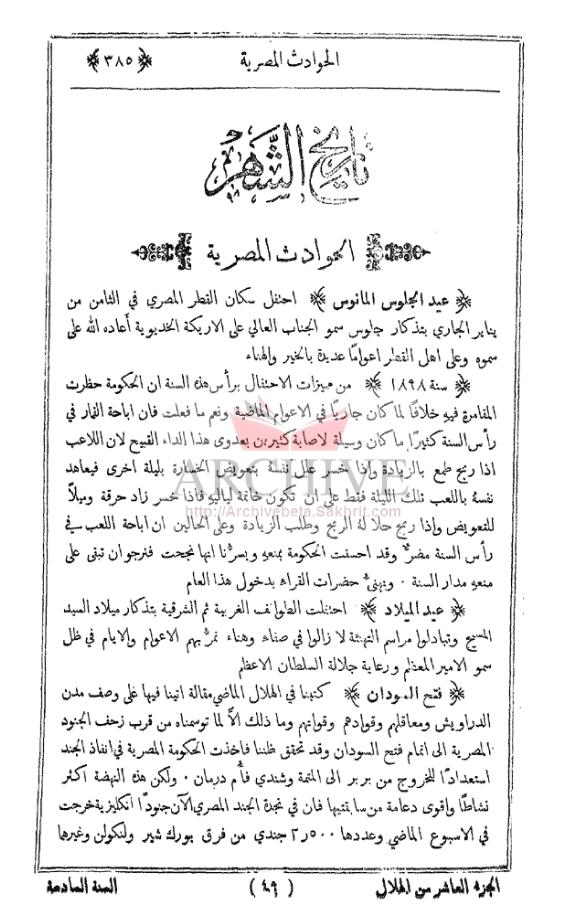 الحوادث المصرية ﴿ ٣٨٥ ﴾
تاريخ الشهر
الحوادث المصرية
﴿ عيد الجلوس المانوس ﴾ احتفل سكان القطر المصري في الثامن من
يناير الجاري بتذكار جلوس سمو الجناب العالي على الاريكة الخديوية أعاده الله على
سموه وعلى اهل القطر اعوامًا عديدة بالخير والهناء
﴿ سنة ١٨٩٨ ﴾ من مميزات الاحتفال برأس هذه السنة ان الحكومة حظرت
المقامرة فيه خلافًا لما كان جاريًا في الاعوام الماضية ونعم ما فعلت فان اباحة القمار في
رأس السنة كثيرًا ما كان وسيلة لاصابة كثيرين بعدوى هذا الداء القبيح لان اللاعب
اذا ربح طمع بالزيادة واذا خسر علل نفسهُ بتعويض الخسارة بليلة اخرى فيعاهد
نفسهُ باللعب تلك الليلة فقط على ان تكون خاتمة لياليهِ فاذا خسر زاد حرقة وميلاً
للتعويض واذا ربح حلا لهُ الربح وطلب الزيادة وعلى الحالين ان اباحة اللعب في
رأس السنة مضرٌّ وقد احسنت الحكومة بمنعهِ ويسرُّنا انها نجحت فنرجو ان تبقى على
منعهِ مدار السنة ٠ ونهنيُّ حضرات القراء بدخول هذا العام
﴿ عيد الميلاد ﴾ احتفلت الطوائف الغربية ثم الشرقية بتذكار ميلاد السيد
المسيح وتبادلوا مراسم التهنئة لا زالوا في صفاء وهناء تمرُّ بهم الاعوام والايام في ظل
سمو الامير المعظم ورعاية جلالة السلطان الاعظم
﴿ فتح السودان ﴾ كتبنا في الهلال الماضي مقالة اتينا فيها على وصف مدن
الدراويش ومعاقلهم وقوادهم وقواتهم وما ذلك الاَّ لما توسمناه من قرب زحف الجنود
المصرية الى اتمام فتح السودان وقد تحقق ظننا فاخذت الحكومة المصرية في انفاذ الجند
استعدادًا للخروج من بربر الى المتمة وشندي فأم درمان ٠ ولكن هذه النهضة اكثر
نشاطًا واقوى دعامة من سابقتيها فان في نجدة الجند المصري الآن جنودًا انكليزية خرجت
في الاسبوع الماضي وعددها ٢٫٥٠٠ جندي من فرق يورك شير ولنكولن وغيرها
الجزء العاشر من الهلال ( ٤٩ ) السنة السادسة
ARCHIVE
http://Archivebeta.Sakhrit.com